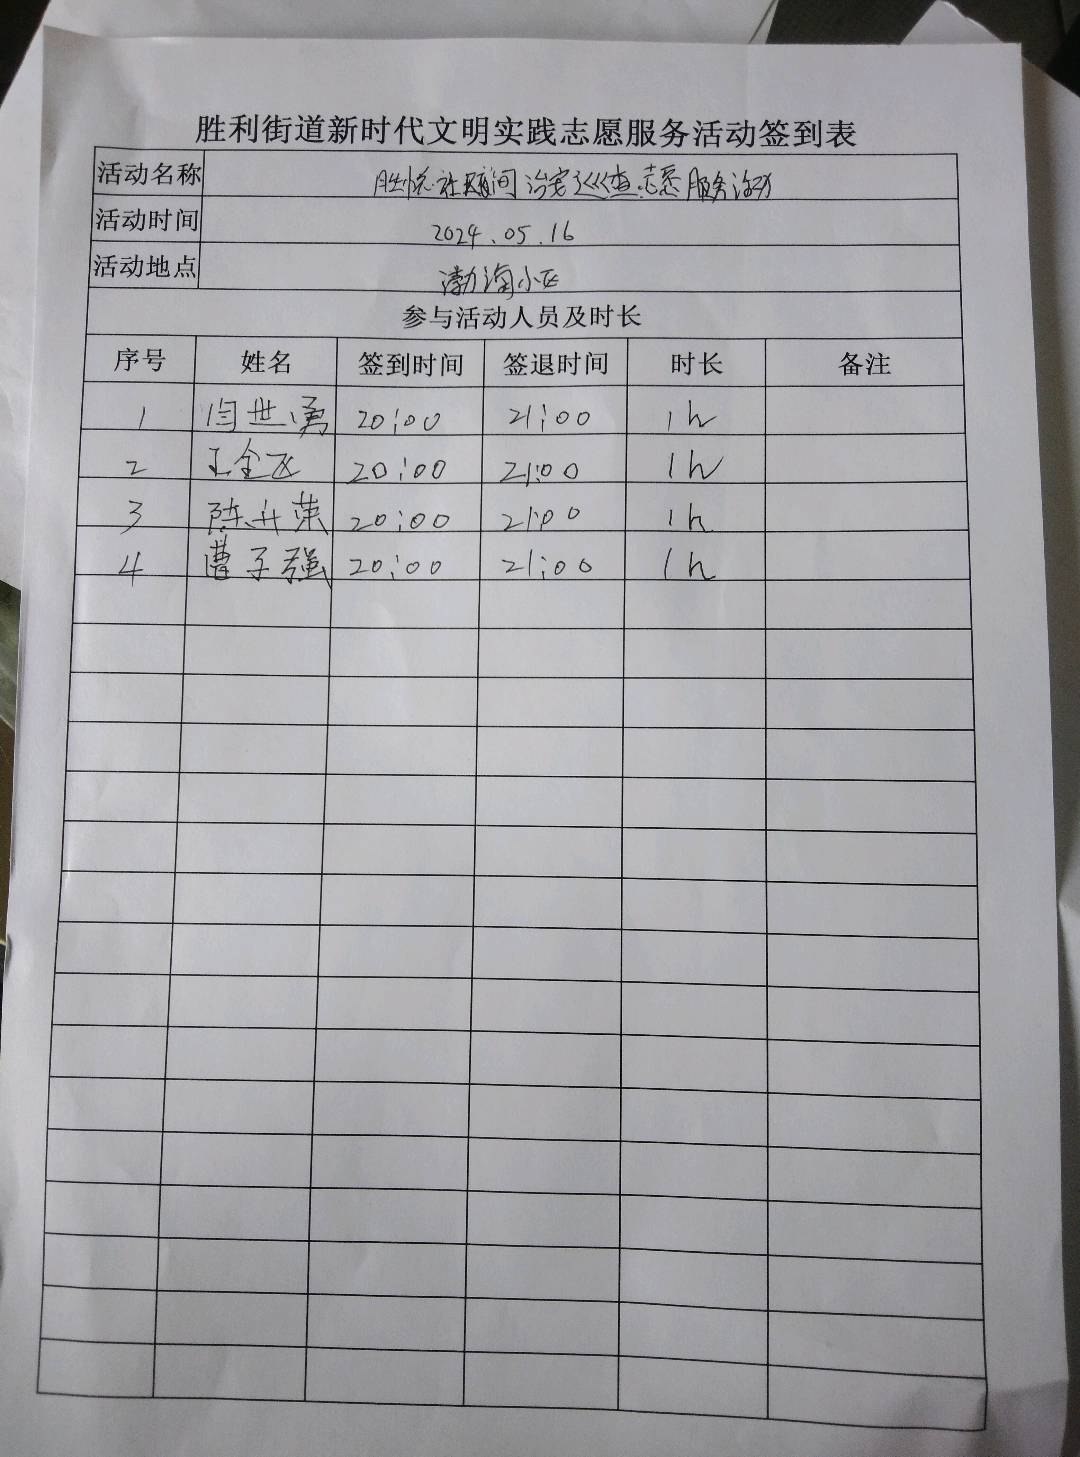 胜利街道新时代文明实践志愿服务活动签到表
活动名称 胜悦社区夜间治安巡查志愿服务活动
活动时间 2024.05.16
活动地点 渤海小区
参与活动人员及时长
序号 姓名 签到时间 签退时间 时长 备注
1 闫世勇 20:00 21:00 1h
2 王全飞 20:00 21:00 1h
3 陈升荣 20:00 21:00 1h
4 曹子强 20:00 21:00 1h